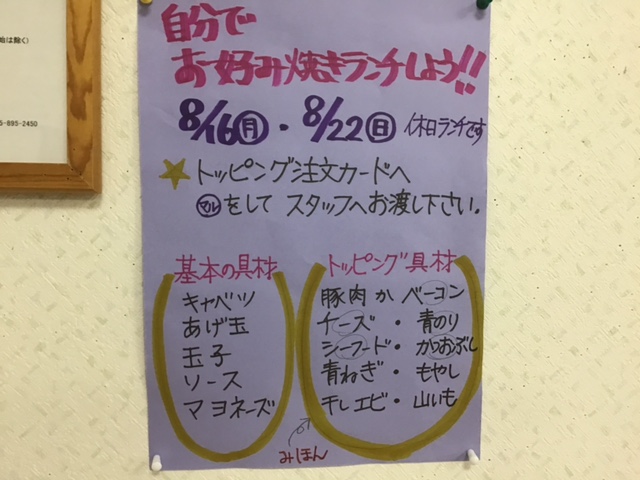 始は除く)
5-895-2450
自分で
お好み焼きランチしよう!!
8/16㊊・8/22㊐ 休日ランチです
★トッピング注文カードへ
マルをして スタッフへお渡し下さい。
基本の具材
キャベツ
あげ玉
玉子
ソース
マヨネーズ
トッピング具材
豚肉かベーコン
チーズ・青のり
シーフード・かつおぶし
青ねぎ・もやし
干しエビ・山いも
みほん